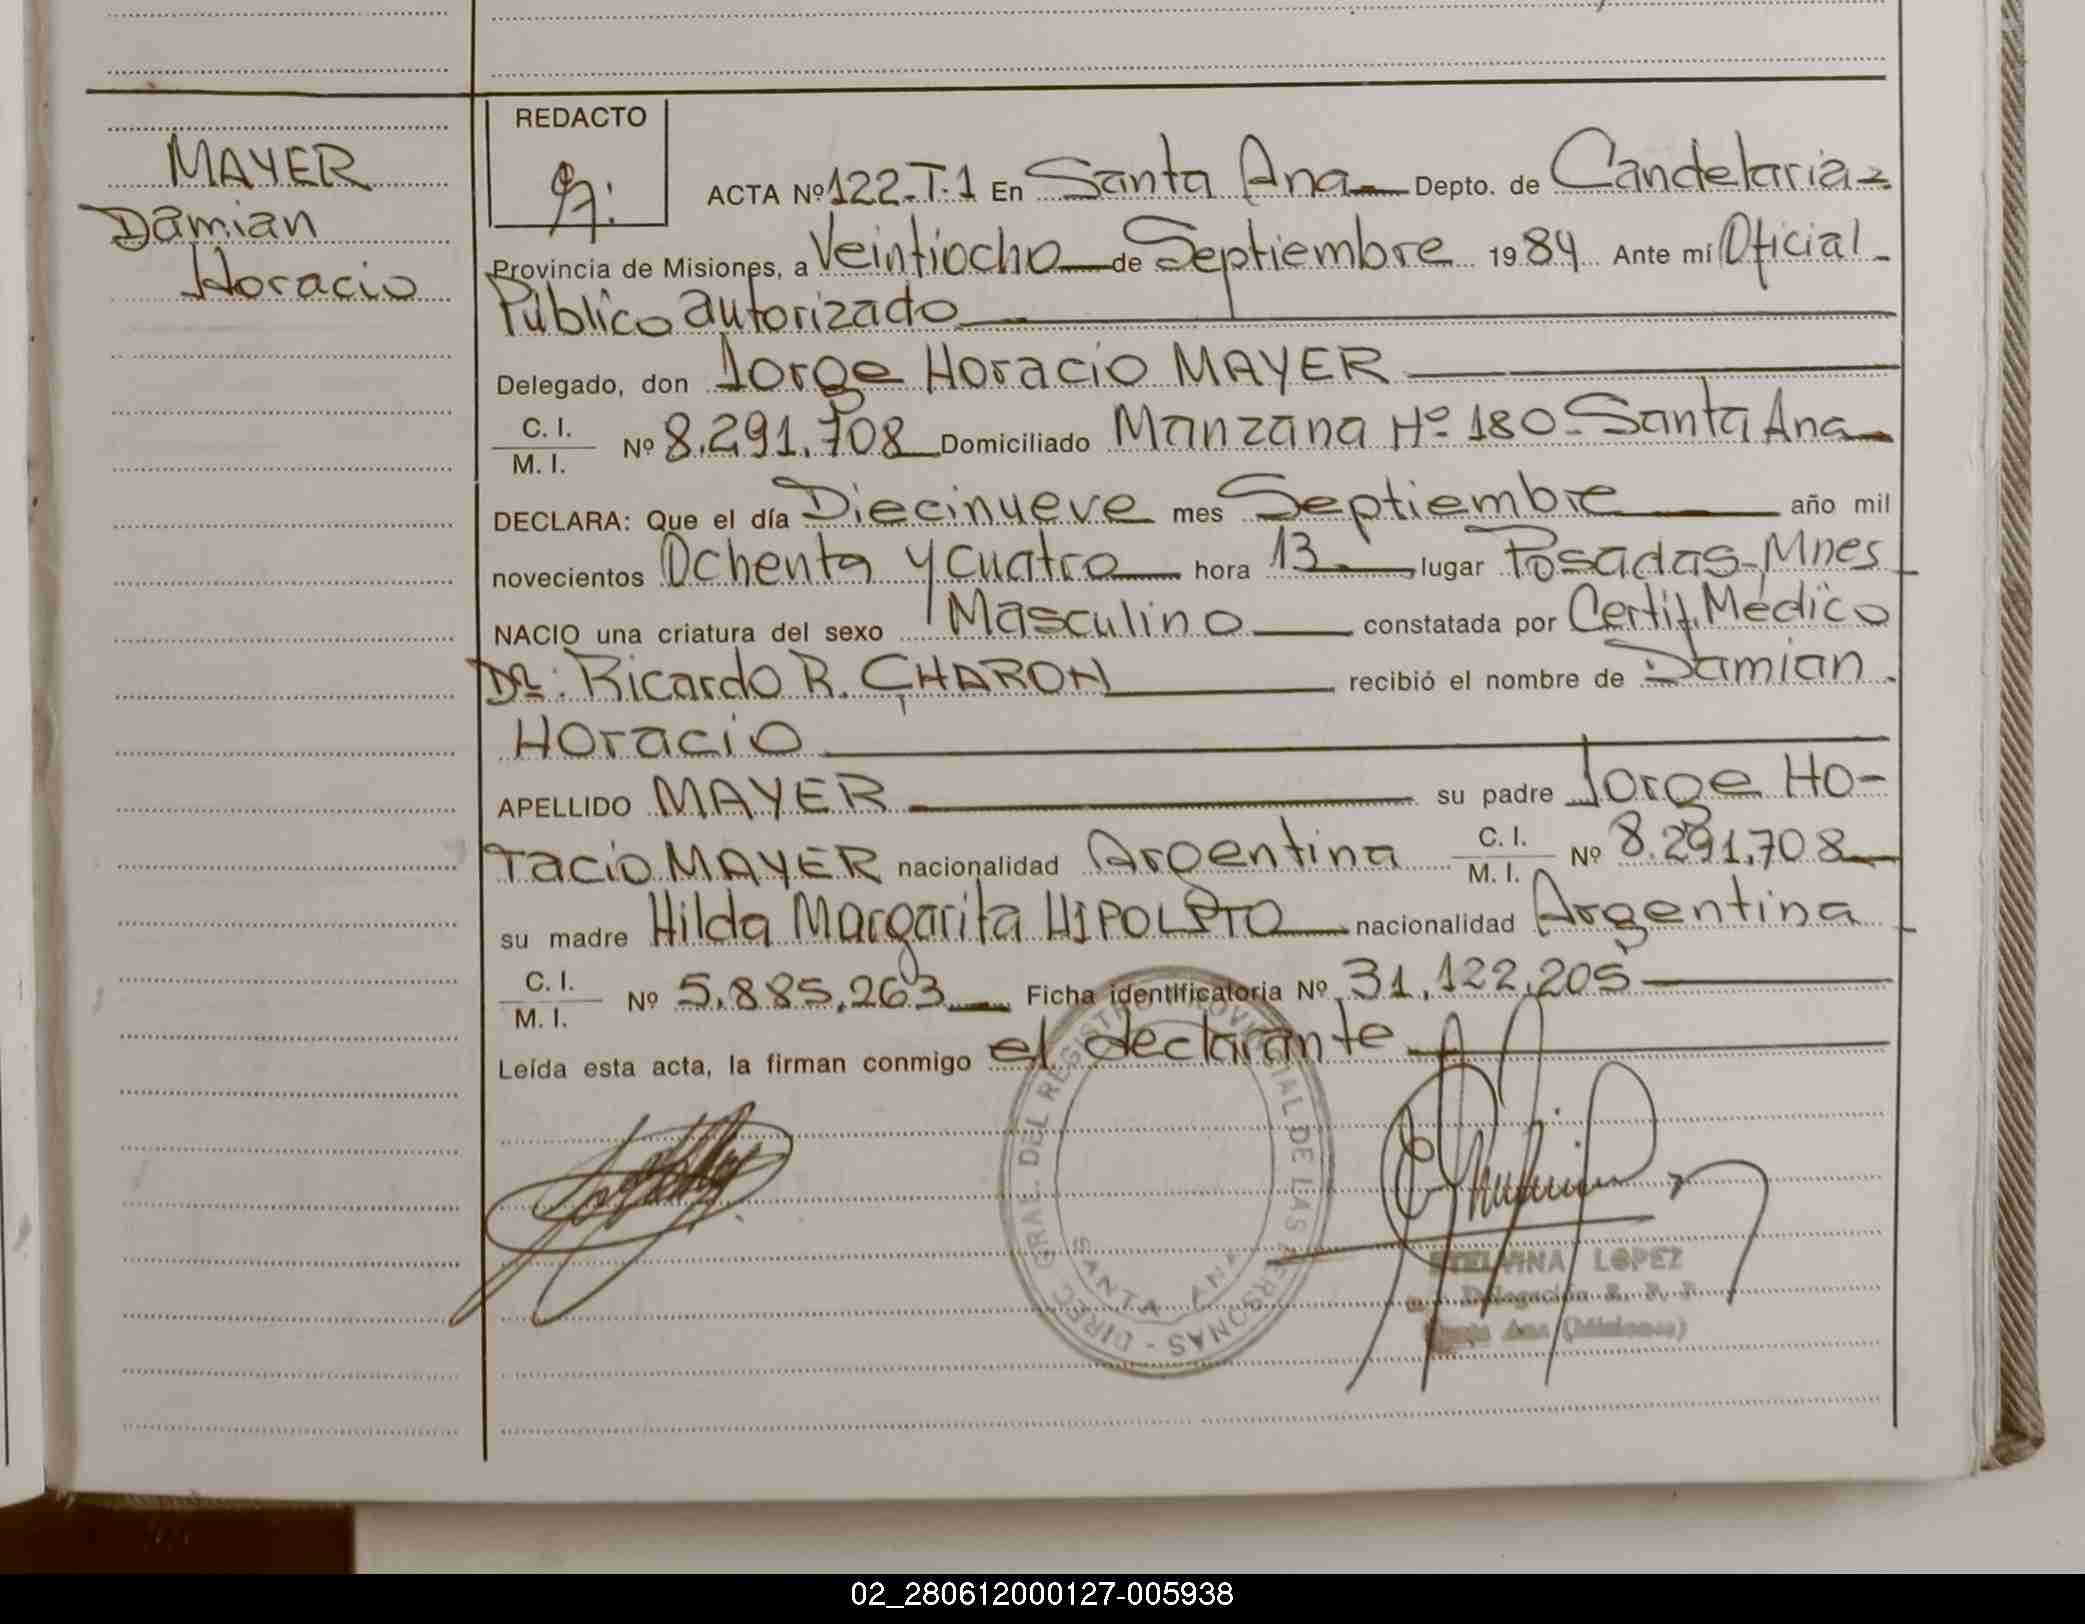 MAYER
Damian
Horacio
REDACTO
ACTA Nº 122-T-1 En Santa Ana Depto. de Candelaria
Provincia de Misiones, a Veintiocho de Septiembre 1984 Ante mí Oficial
Publico autorizado
Delegado, don Jorge Horacio MAYER
C. I.
M. I. Nº 8.291.708 Domiciliado Manzana Nº 180 - Santa Ana
DECLARA: Que el día Diecinueve mes Septiembre año mil
novecientos Ochenta y cuatro hora 13 lugar Posadas-Mnes
NACIO una criatura del sexo Masculino constatada por Certif. Médico
Dr: Ricardo R. CHARON recibió el nombre de Damian
Horacio
APELLIDO MAYER su padre Jorge Ho-
racio MAYER nacionalidad Argentina C. I. M. I. Nº 8.291.708
su madre Hilda Margarita HIPOLITO nacionalidad Argentina
C. I.
M. I. Nº 5.885.263 Ficha identificatoria Nº 31.122.205
Leída esta acta, la firman conmigo el declarante
DIREC. GRAL. DEL REGISTRO PROVINCIAL DE LAS PERSONAS -
SANTA ANA
LOPEZ
Delegación R. P. P.
Santa Ana (Misiones)
02_280612000127-005938